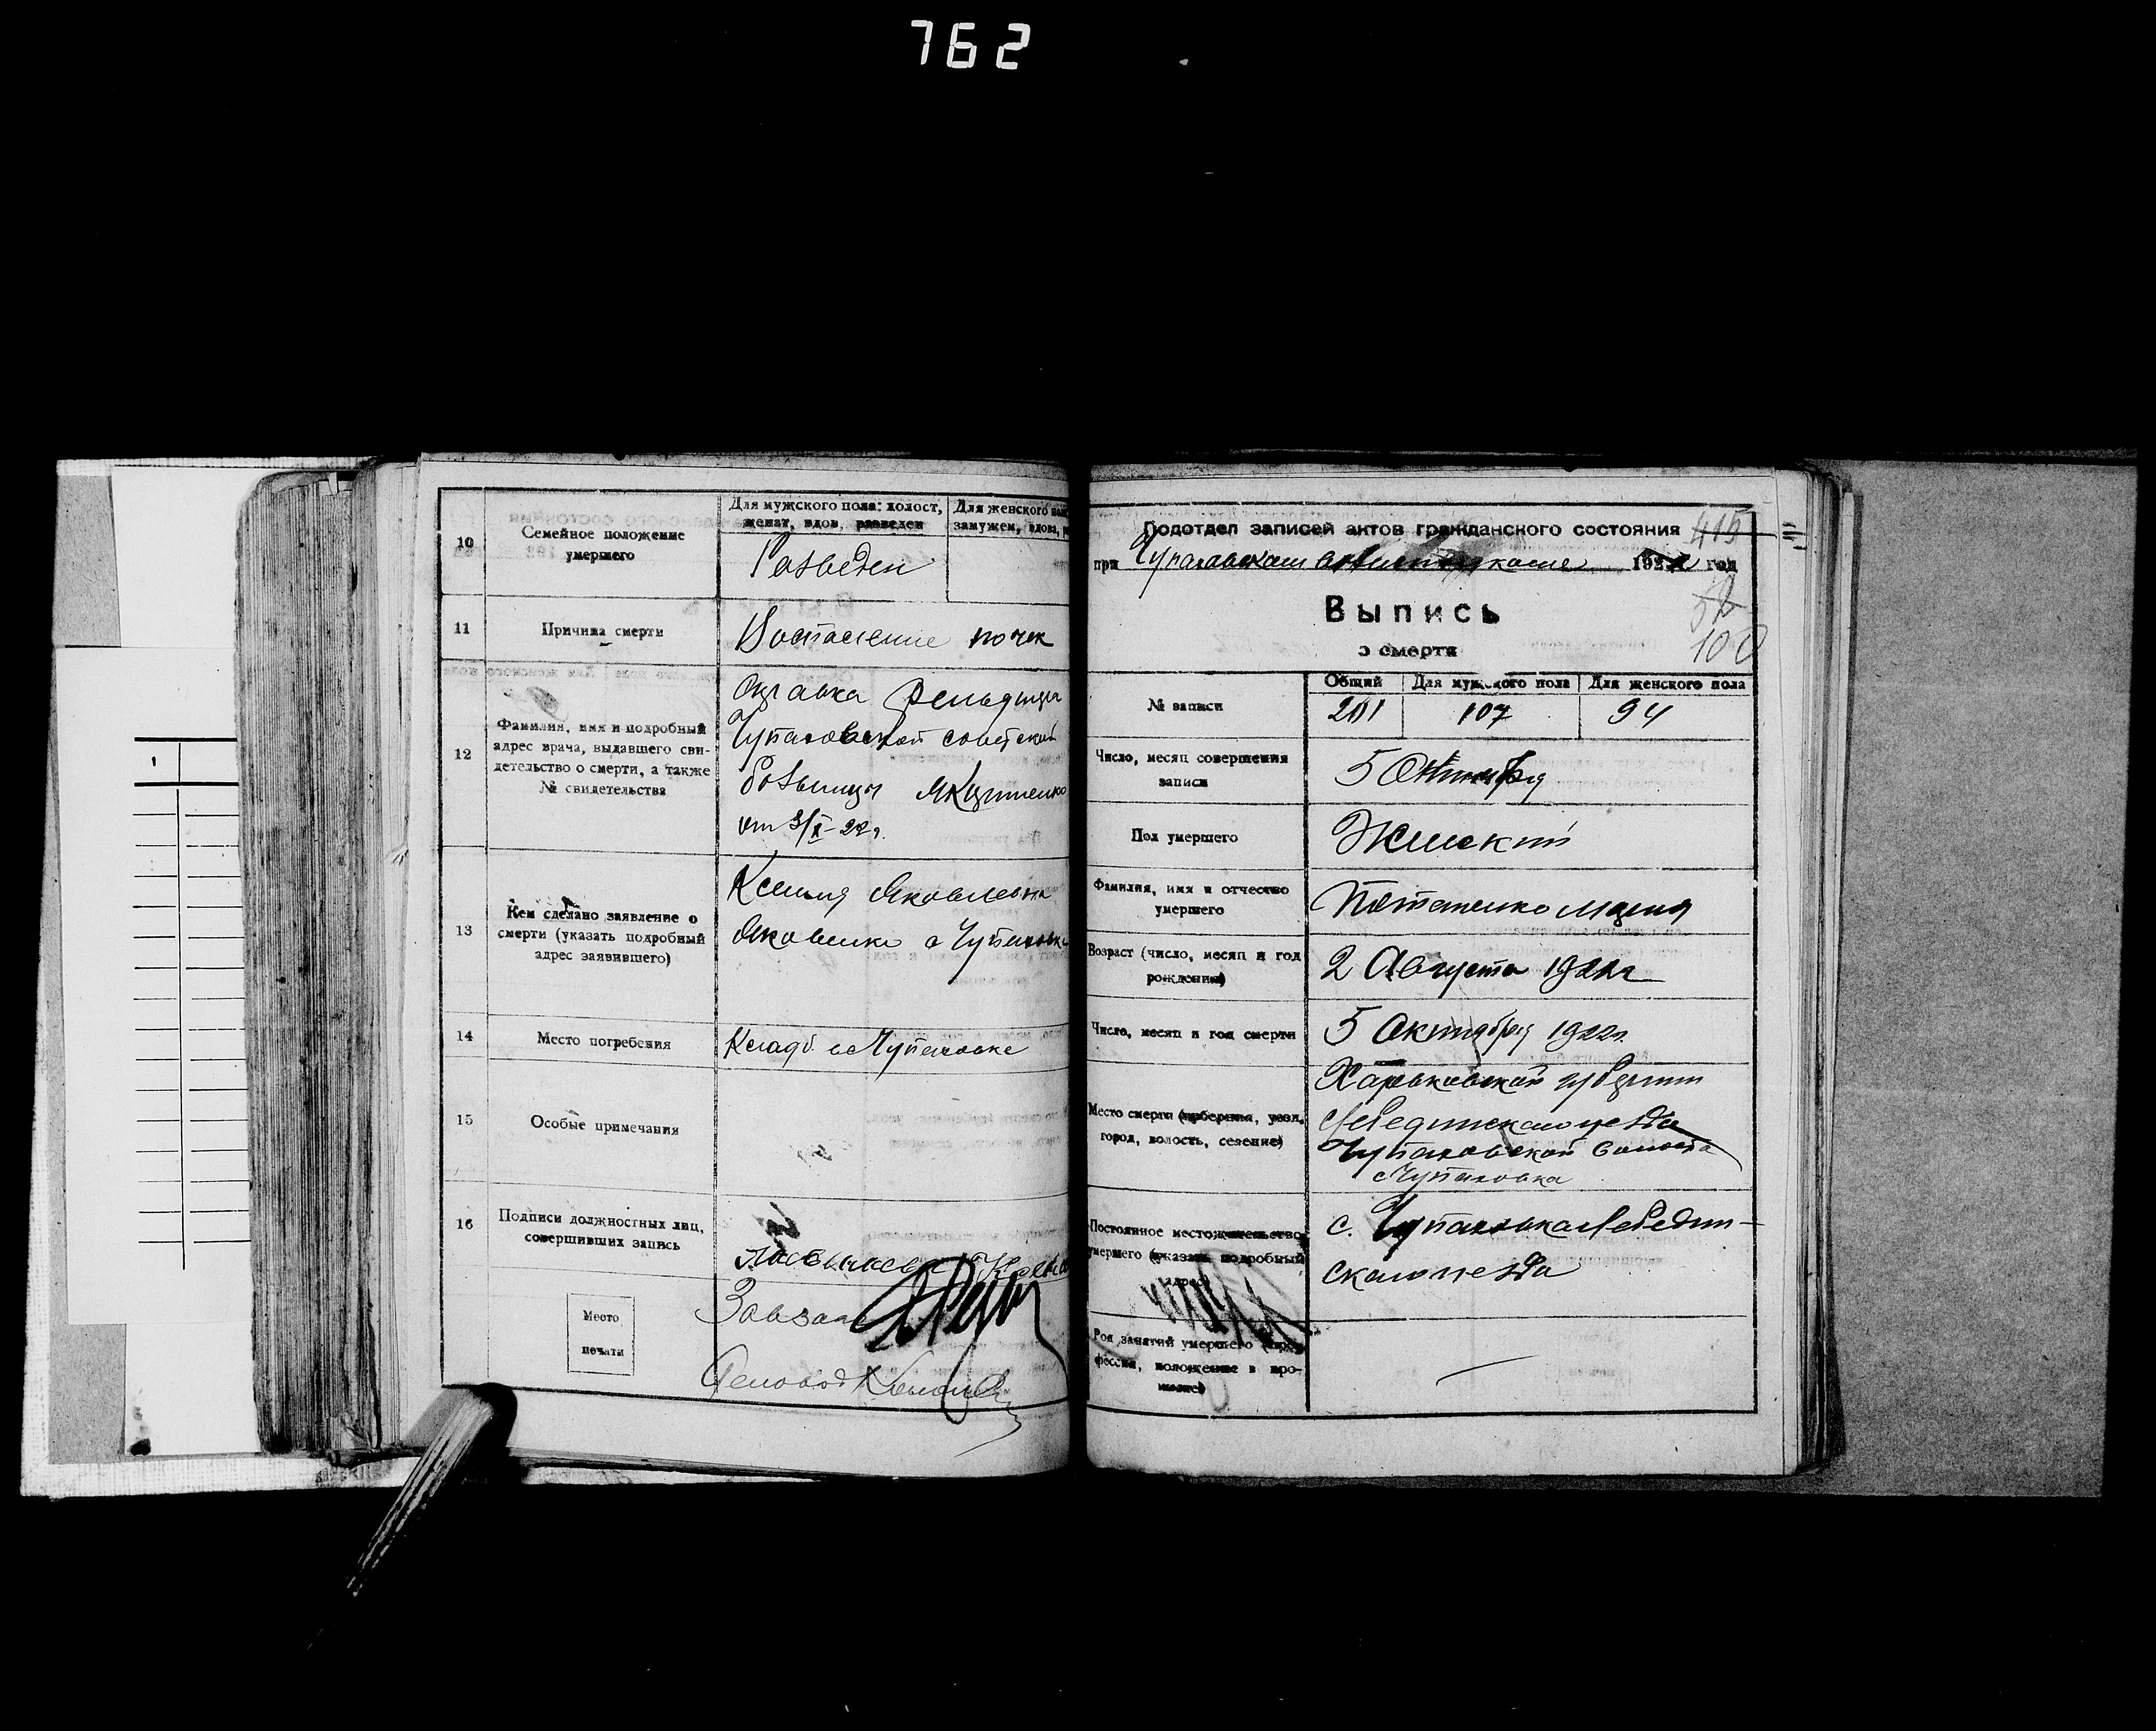 762
10
Семейное положение
умершего
Для мужского пола: холост,
женат, вдов, разведен
Для женского
замужем, вдова,
Разведен
11
Причина смерти
Воспаление почек
12
Фамилия, имя и подробный
адрес врача, выдавшего сви-
детельство о смерти, а также
№ свидетельства
Чупаховской советской
от 3/X-22г.
13
Кем сделано заявление о
смерти (указать подробный
адрес заявившего)
Ксения Яковлевна
Яковенко
14
Место погребения
Кладб. в с Чупаховке
15
Особые примечания
16
Подписи должностных лиц,
совершивших запись
Место
печати
Деловод
Подотдел записей актов гражданского состояния
415
при Чупаховском 1922 год
Выпись
о смерти
100
№ записи
Общий
Для мужского пола
Для женского пола
201
107
94
Число, месяц совершения
записи
5 Октября
Пол умершего
Женский
Фамилия, имя и отчество
умершего
Потапенко Мария
Возраст (число, месяц и год
рождения)
2 Августа
Число, месяц и год смерти
5 Октября 1922г.
Место смерти (губерния, уезд,
город, волость, селение)
Харьковской губернии
Лебединского уезда
Чупаховской волости
с Чупаховка
Постоянное местожительство
умершего (указать подробный
адрес)
с. Чупаховка Лебедин-
ского уезда
Род занятий умершего (про-
фессия, положение в про-
мысле)